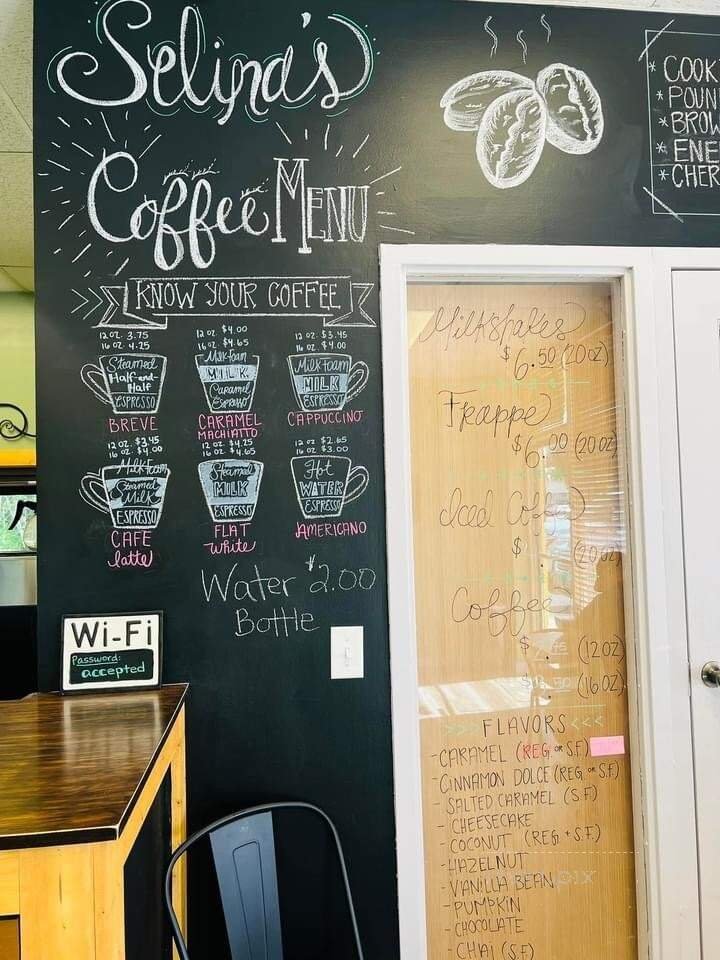 Selina's
Coffee MENU
KNOW YOUR COFFEE
12 oz. 3.75
16 oz. 4.25
Steamed
Half-and-
Half
ESPRESSO
BREVE
12 oz. $4.00
16 oz. $4.65
Milk Foam
MILK
Caramel
Espresso
CARAMEL
MACHIATTO
12 oz. $3.45
16 oz. $4.00
MILK FOAM
MILK
ESPRESSO
CAPPUCCINO
12 oz $3.45
16 oz. $4.00
Milk Foam
Steamed
Milk
ESPRESSO
CAFE
latte
12 oz. $4.25
16 oz. $4.65
Steamed
MILK
ESPRESSO
FLAT
white
12 oz $2.65
16 oz $3.00
Hot
WATER
ESPRESSO
AMERICANO
Water $2.00
Bottle
Wi-Fi
Password:
accepted
* COOK
* POUN
* BROW
* ENE
* CHER
Milkshakes
$6.50 (20oz)
Frappe
$6.00 (20oz)
Iced Coffee
$ (20oz)
Coffee
$ (12oz)
$ (16oz)
FLAVORS <<<
- CARAMEL (REG OR S.F.)
- CINNAMON DOLCE (REG OR S.F.)
- SALTED CARAMEL (S.F.)
- CHEESECAKE
- COCONUT (REG + S.F.)
- HAZELNUT
- VANILLA BEAN
- PUMPKIN
- CHOCOLATE
- CHAI (S.F.)